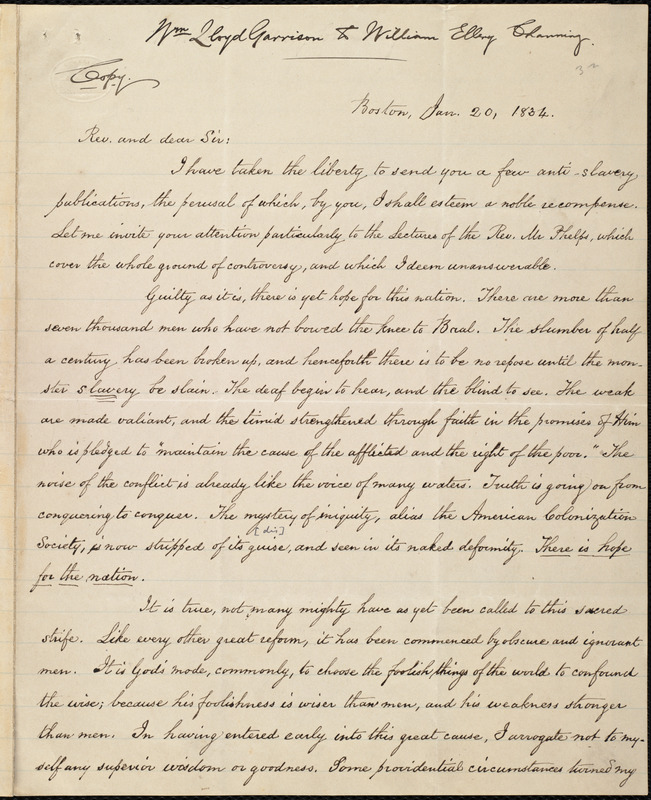 Wm Lloyd Garrison to William Ellery Channing.
Copy.
Boston, Jan. 20, 1834.
Rev. and dear Sir:
I have taken the liberty to send you a few anti-slavery
publications, the perusal of which, by you, I shall esteem a noble recompense.
Let me invite your attention particularly to the Lectures of the Rev. Mr Phelps, which
cover the whole ground of controversy, and which I deem unanswerable.
Guilty as it is, there is yet hope for this nation. There are more than
seven thousand men who have not bowed the knee to Baal. The slumber of half
a century has been broken up, and henceforth there is to be no repose until the mon-
ster slavery be slain. The deaf begin to hear, and the blind to see. The weak
are made valiant, and the timid strengthened through faith in the promises of Him
who is pledged to "maintain the cause of the afflicted and the right of the poor." The
noise of the conflict is already like the voice of many waters. Truth is going on from
conquering to conquer. The mystery of iniquity, alias the American Colonization
[dis]
Society, is now stripped of its guise, and seen in its naked deformity. There is hope
for the nation.
It is true, not many mighty have as yet been called to this sacred
strife. Like every other great reform, it has been commenced by obscure and ignorant
men. It is God's mode, commonly, to choose the foolish things of the world to confound
the wise; because his foolishness is wiser than men, and his weakness stronger
than men. In having entered early into this great cause, I arrogate not to my-
self any superior wisdom or goodness. Some providential circumstances turned my